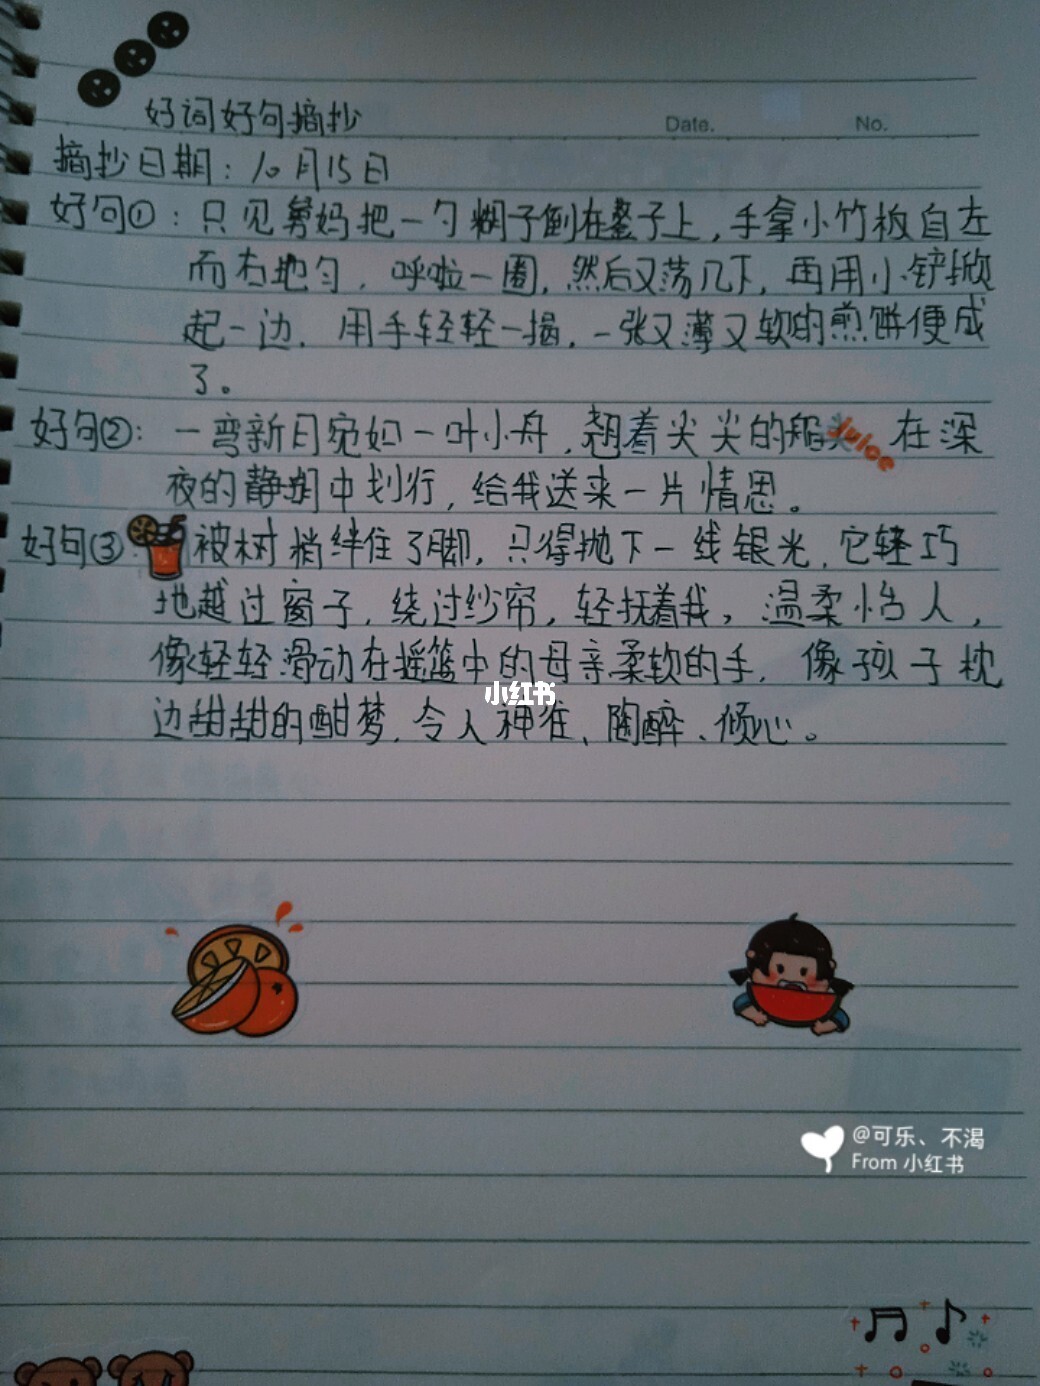 好词好句摘抄
Date.
No.
摘抄日期：10月15日
好句①：只见舅妈把一勺糊子倒在鏊子上，手拿小竹板自左
而右地匀，呼啦一圈，然后又荡几下，再用小铲掀
起一边，用手轻轻一揭，一张又薄又软的煎饼便成
了。
好句②：一弯新月宛如一叶小舟，翘着尖尖的船 juice 在深
夜的静湖中划行，给我送来一片情思。
好句③ 被树梢绊住了脚，只得抛下一线银光，它轻巧
地越过窗子，绕过纱帘，轻抚着我，温柔怡人，
像轻轻滑动在摇篮中的母亲柔软的手，像孩子枕
小红书
边甜甜的酣梦，令人神往、陶醉、倾心。
@可乐、不渴
From 小红书